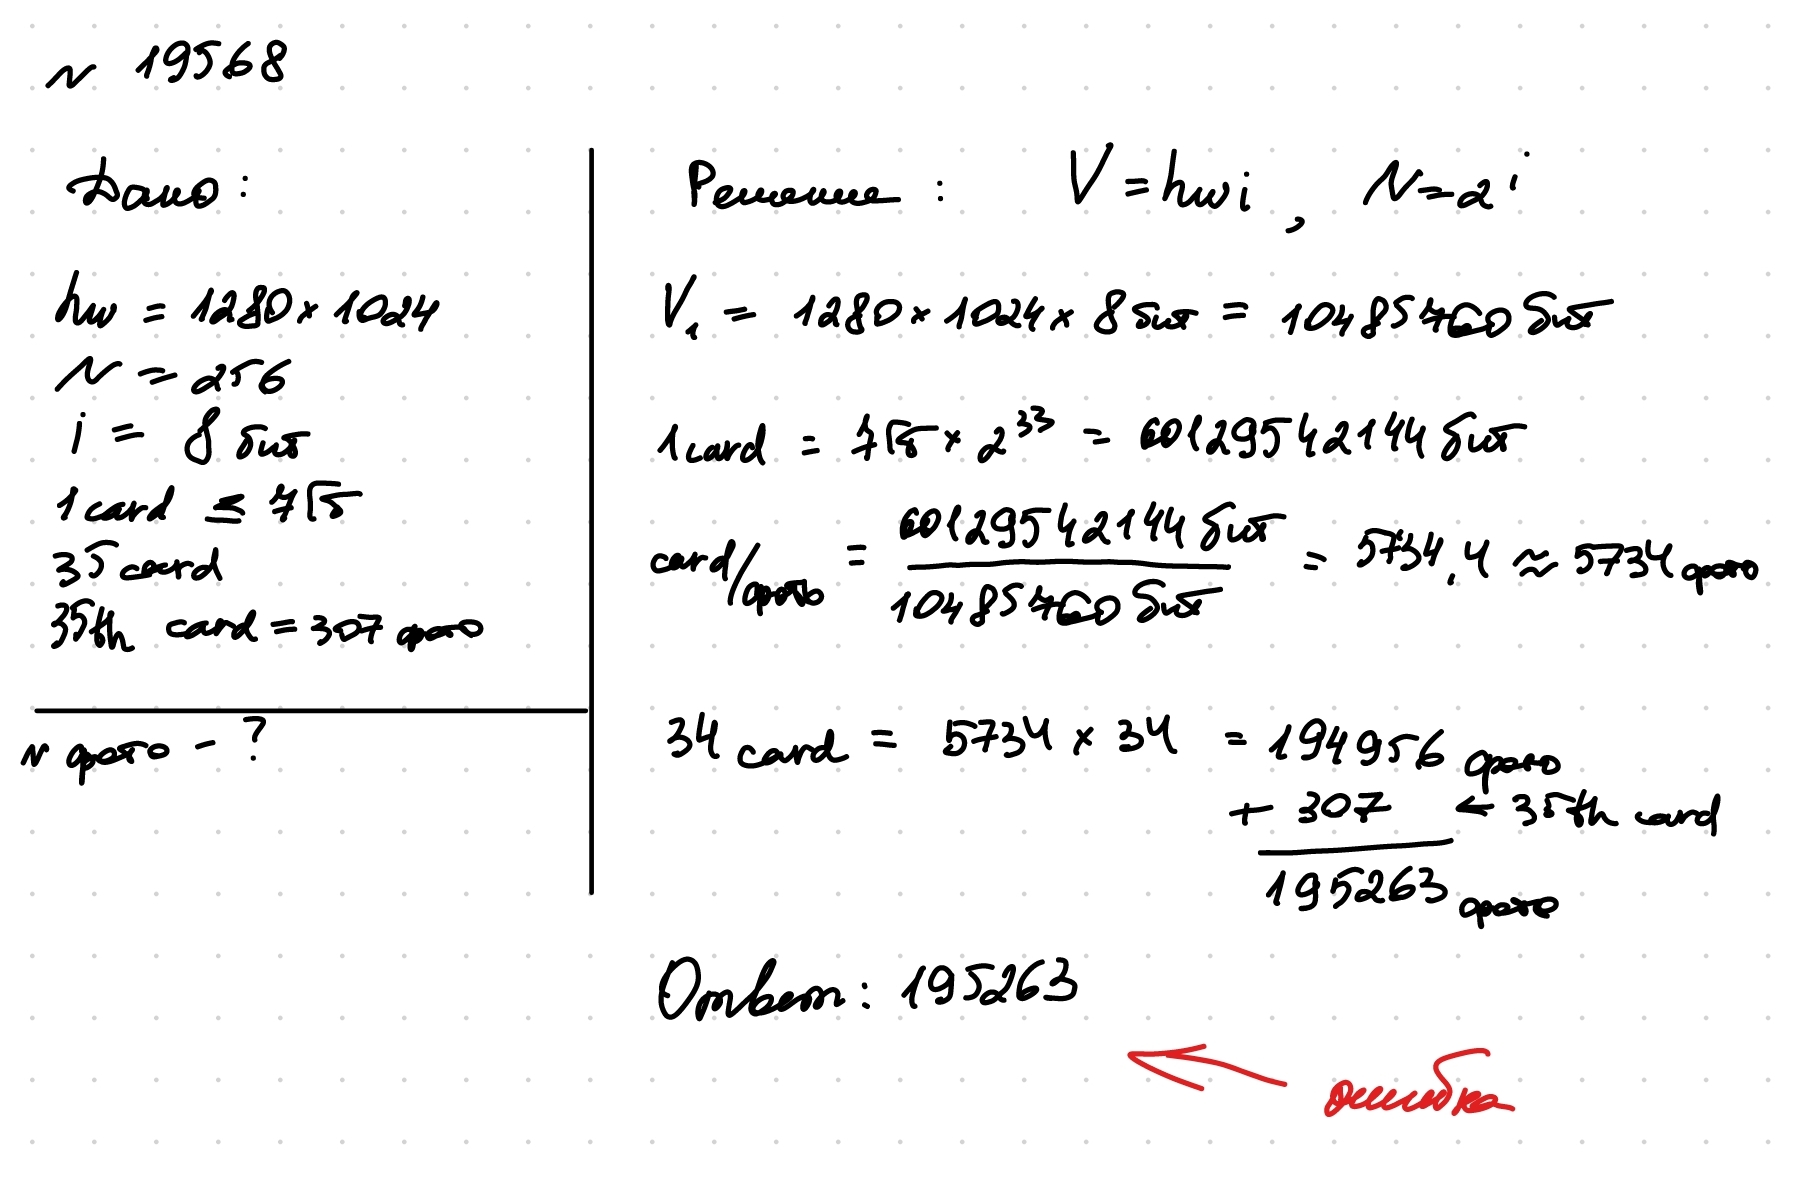 ~ 19568
Дано:
hw = 1280 × 1024
N = 256
i = 8 бит
1 card ≤ 7Гб
35 card
35th card = 307 фото
N фото - ?
Решение: V = hwi, N = 2^i
V₁ = 1280 × 1024 × 8 бит = 10485760 бит
1 card = 7Гб × 2^33 = 60129542144 бит
card/фото = 60129542144 бит / 10485760 бит = 5734,4 ≈ 5734 фото
34 card = 5734 × 34 = 194956 фото
+ 307 ← 35th card
195263 фото
Ответ: 195263
← ошибка